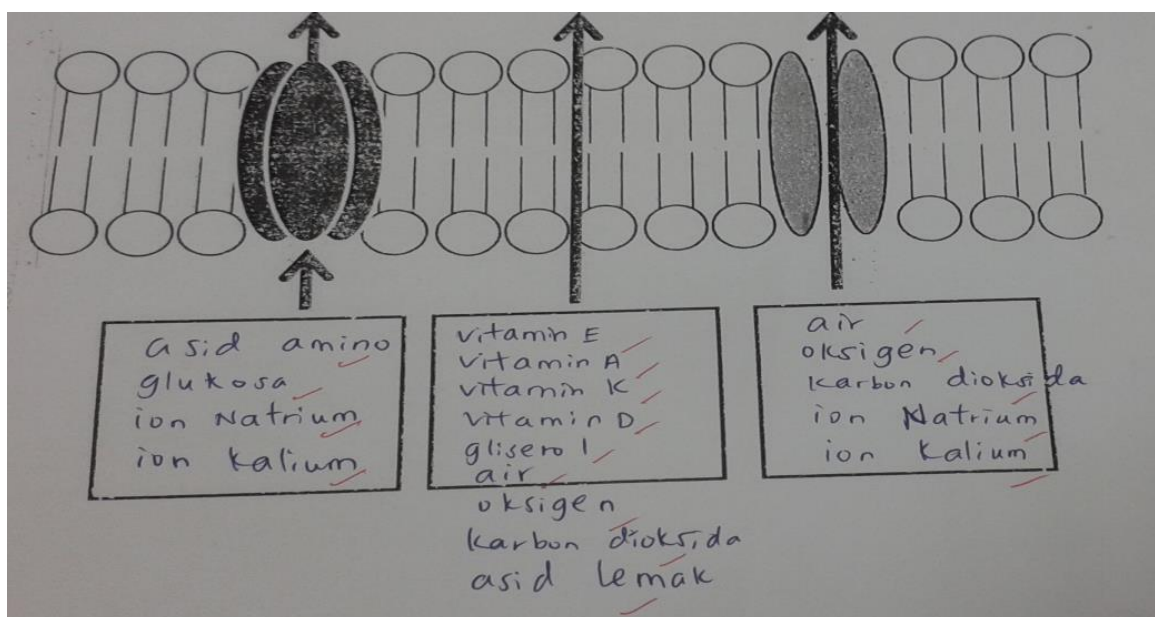 asid amino
glukosa
ion Natrium
ion kalium
vitamin E
vitamin A
vitamin K
vitamin D
gliserol
air
oksigen
karbon dioksida
asid lemak
air
oksigen
karbon dioksida
ion Natrium
ion kalium